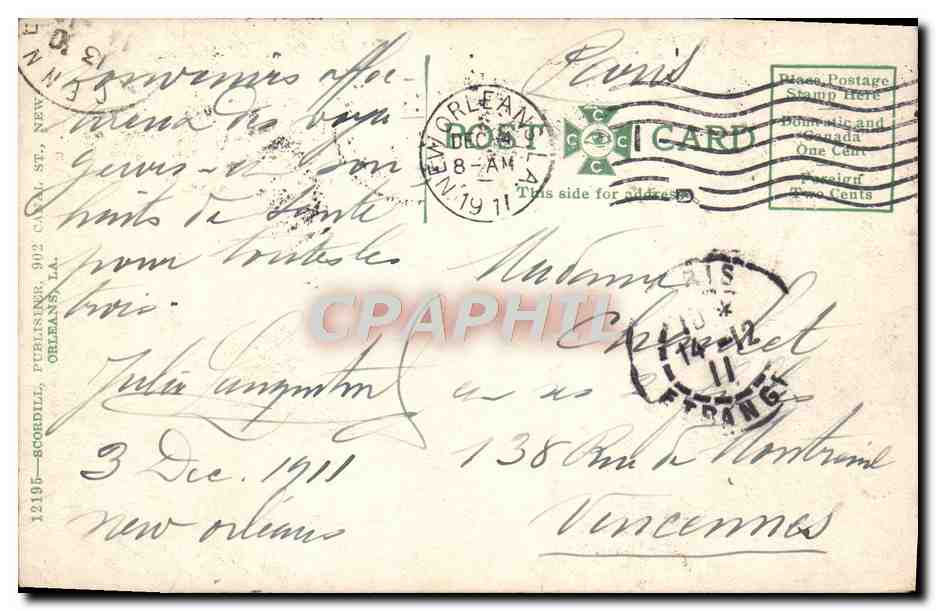 Souvenirs affec-
des voya-
geurs - et Sou-
haits de Santé
pour toutes les
trois.
Julia
3 Dec. 1911
New Orléans
Paris
POST CARD
This side for address
Place Postage
Stamp Here
Domestic and
Canada
One Cent
Foreign
Two Cents
NEW ORLEANS, LA.
DEC
8-AM
1911
1
C C C C
Madame
138 Rue de Montreuil
Vincennes
PARIS
14-12
11
ETRANG
VINCENNES
13
12195—SCORDILL, PUBLISHER, 902 CANAL ST., NEW
ORLEANS, LA.
CPAPHIL